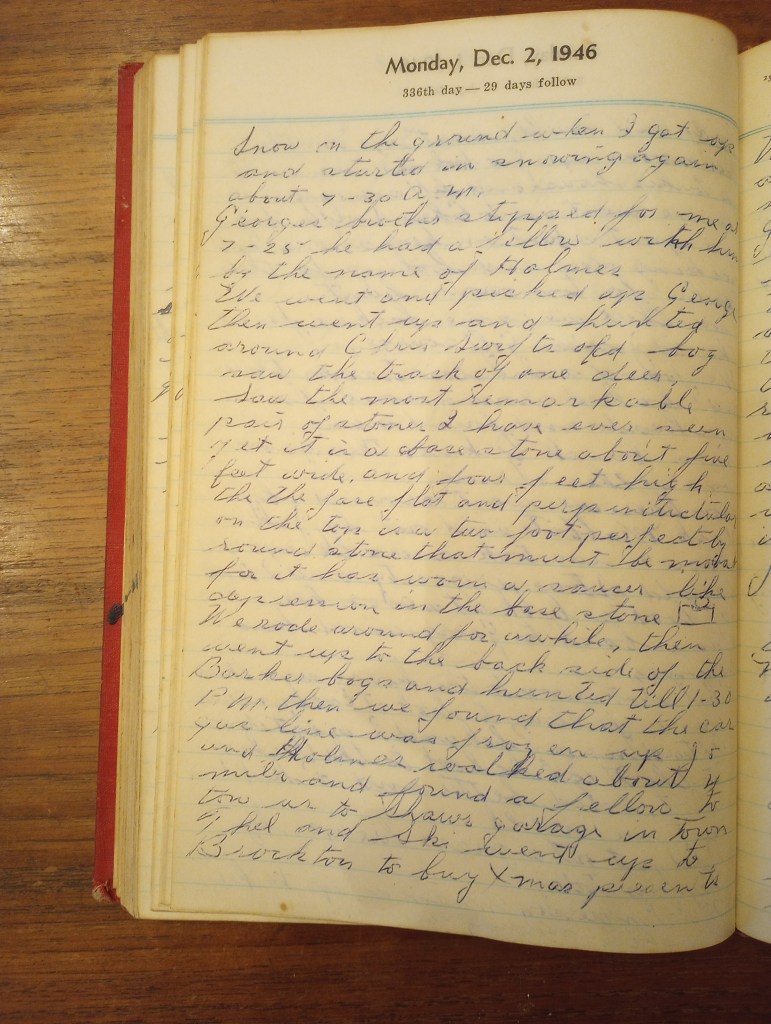 Monday, Dec. 2, 1946
336th day — 29 days follow
Snow on the ground when I got up
and started in snowing again
about 7-30 A.M.
Georges brother stopped for me at
7-25 he had a fellow with him
by the name of Holmes
We went and picked up George
then went up and hunted
around Chris Swifts old bog
saw the track of one deer.
Saw the most remarkable
pair of stones I have ever seen
yet it is a base stone about five
feet wide. and four feet high.
the the face flat and
on the top is a two foot perfectly
round stone that must be
for it has worn a saucer like
in the base stone
We rode around for awhile, then
went up to the back side of the
Barker bogs and hunted till 1-30
P.M. then we found that the car
gas line was frozen up so
and Holmes walked about 4
miles and found a fellow to
tow us to Shaws garage in Town
Ethel and Ski went up to
Brockton to buy Xmas presents